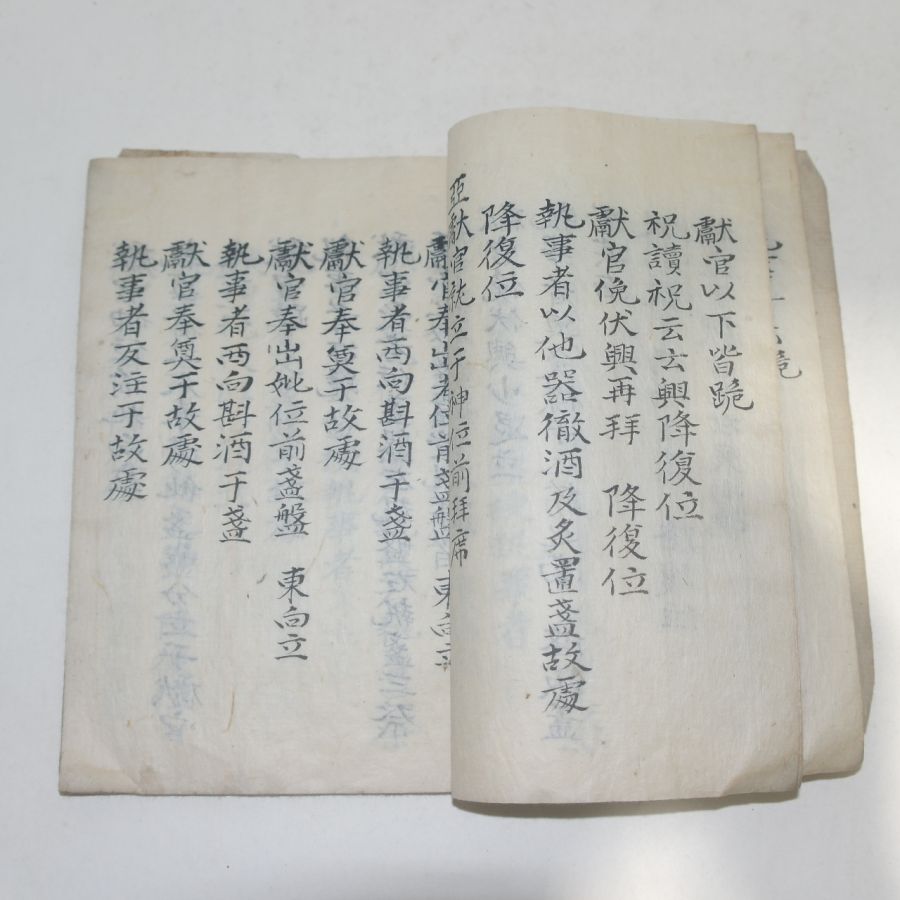 獻官以下皆跪
祝讀祝云云興降復位
獻官俛伏興再拜 降復位
執事者以他器徹酒及炙置盞故處
降復位
亞獻官就立于神位前拜席
獻官奉出考位前盞盤 東向立
執事者西向斟酒于盞
獻官奉奠于故處
獻官奉出妣位前盞盤 東向立
執事者西向斟酒于盞
獻官奉奠于故處
執事者反注于故處